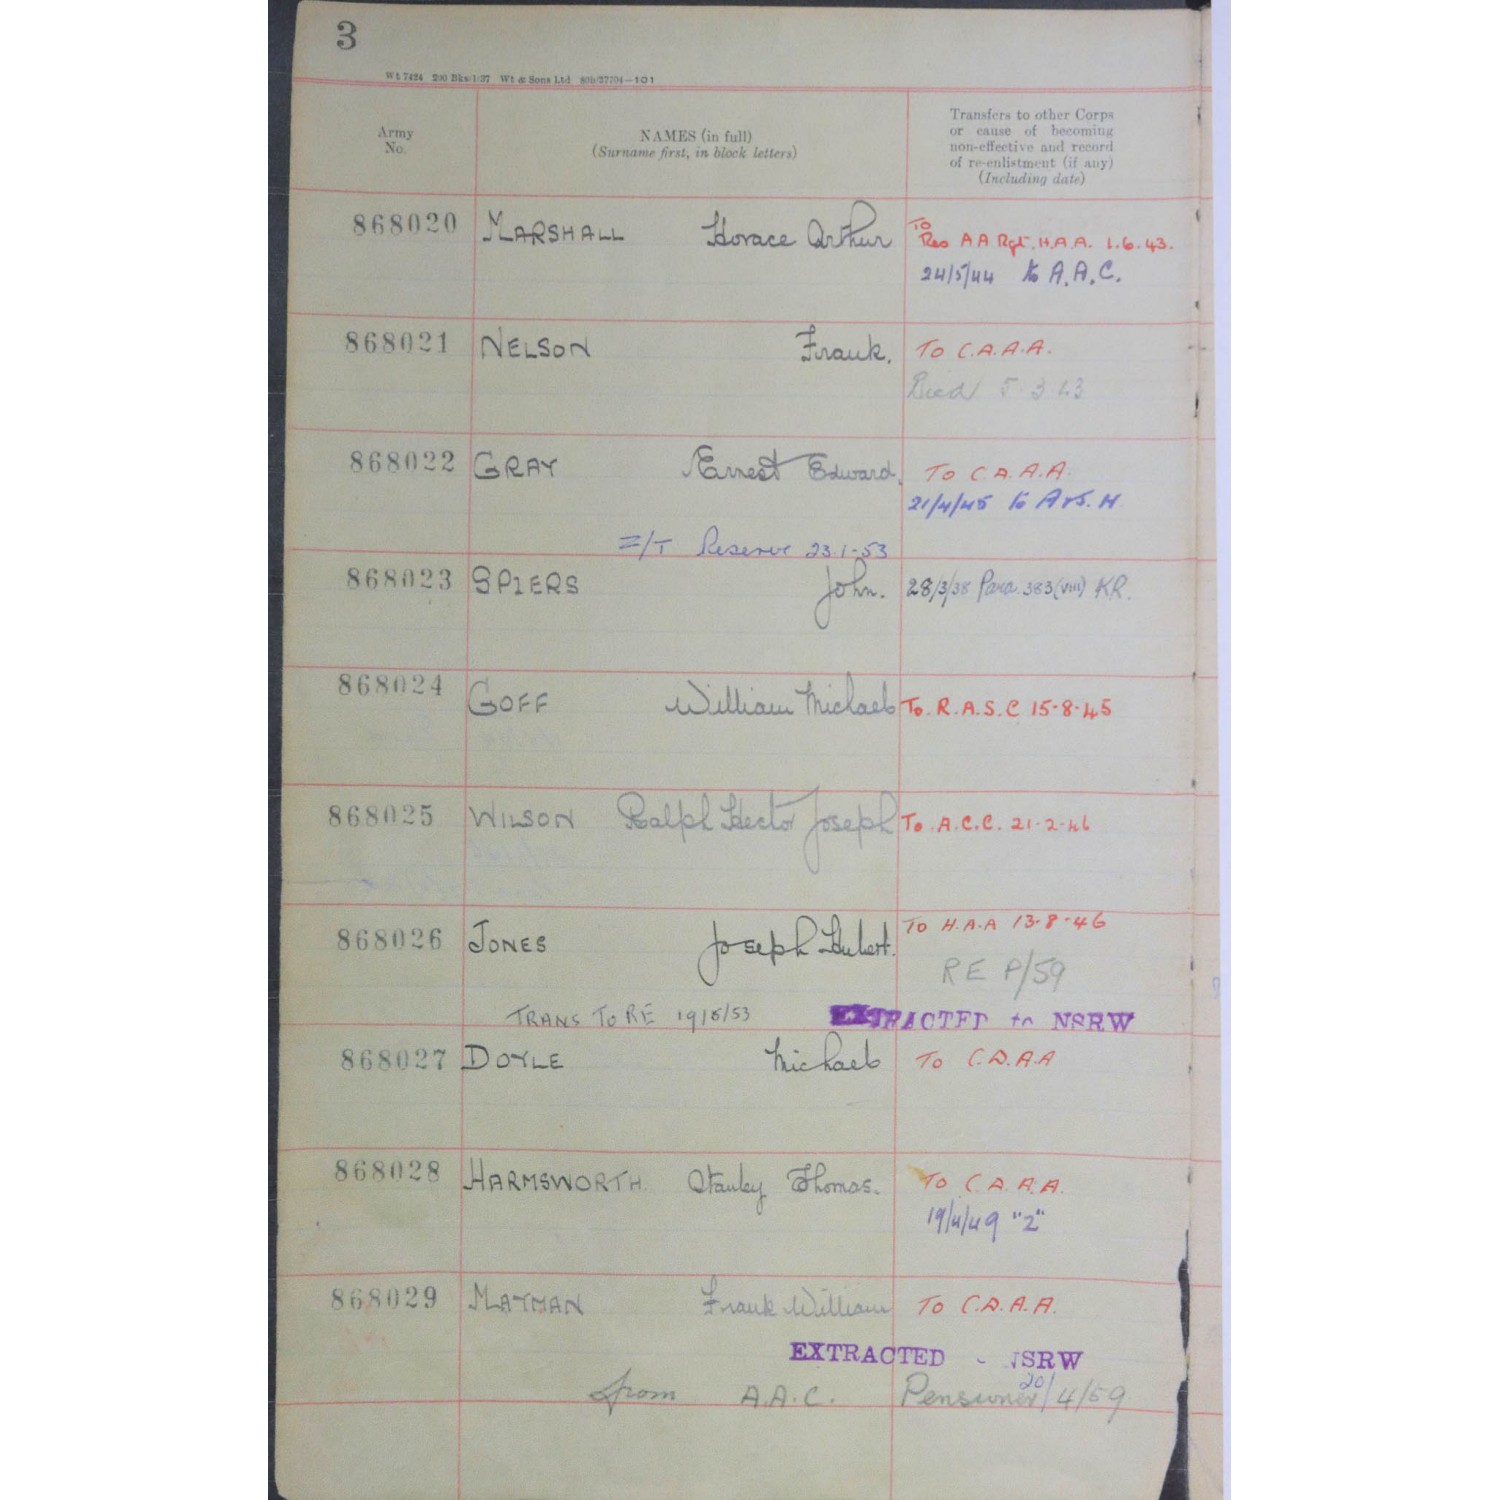 3
Wt 7424 200 Bks/1/37 Wt & Sons Ltd 80b/37704—101
Army
No.
NAMES (in full)
(Surname first, in block letters)
Transfers to other Corps
or cause of becoming
non-effective and record
of re-enlistment (if any)
(Including date)
868020 MARSHALL Horace Arthur TO Res A A Rgt. H.A.A. 1.6.43.
24/5/44 to A.A.C.
868021 NELSON Frank. To C.A.A.A.
Died 5 3 43
868022 GRAY Ernest Edward. To C.A.A.A.
21/4/45 to H
Z/T Reserve 23.1-53
868023 SPIERS John. 28/3/38 Para. 383(VIII) KR.
868024 GOFF William Michael To. R.A.S.C 15-8-45
868025 WILSON Ralph Hector Joseph To. A.C.C. 21-2-46
868026 JONES Joseph Hubert. To H.A.A 13-8-46
RE P/59
TRANS TO RE 19/5/53 EXTRACTED to NSRW
868027 DOYLE Michael To C.D.A.A
868028 HARMSWORTH Stanley Thomas. To C.A.A.A.
19/4/49 "2"
868029 MAYMAN Frank William To C.D.A.A.
EXTRACTED NSRW
from A.A.C. Pensioner 20/4/59